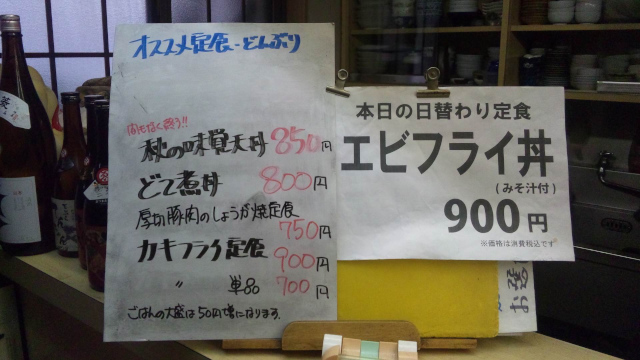 オススメ定食・どんぶり
間もなく終了!!
秋の味覚天丼 850円
どて煮丼 800円
厚切豚肉のしょうが焼定食 750円
カキフライ定食 900円
〃 単品 700円
ごはんの大盛は50円増になります.
本日の日替わり定食
エビフライ丼
(みそ汁付)
900円
※価格は消費税込です